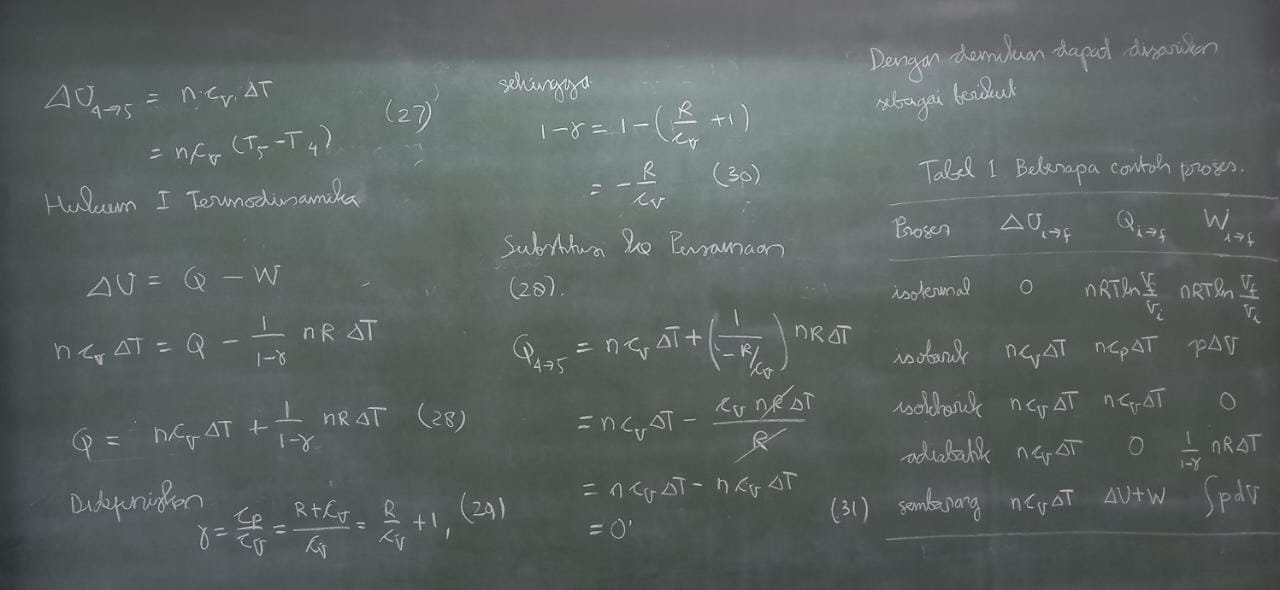 ΔU₄→₅ = n.c_v.ΔT
= n c_v (T₅ - T₄) (27)
Hukum I Termodinamika
ΔU = Q - W
n c_v ΔT = Q - 1/(1-γ) nR ΔT
Q = n c_v ΔT + 1/(1-γ) nR ΔT (28)
Didefinisikan
γ = c_p/c_v = (R + c_v)/c_v = R/c_v + 1, (29)
sehingga
1-γ = 1 - (R/c_v + 1)
= - R/c_v (30)
Substitusi ke Persamaan
(28).
Q₄→₅ = n c_v ΔT + (1/(-R/c_v)) nR ΔT
= n c_v ΔT - (c_v nR ΔT)/R
= n c_v ΔT - n c_v ΔT
= 0 (31)
Dengan demikian dapat disarikan
sebagai berikut
Tabel 1 Beberapa contoh proses.
Proses ΔU_i→f Q_i→f W_i→f
isotermal 0 nRT ln V_f/V_i nRT ln V_f/V_i
isobarik n c_v ΔT n c_p ΔT pΔV
isokhorik n c_v ΔT n c_v ΔT 0
adiabatik n c_v ΔT 0 1/(1-γ) nRΔT
sembarang n c_v ΔT ΔU+W ∫pdV